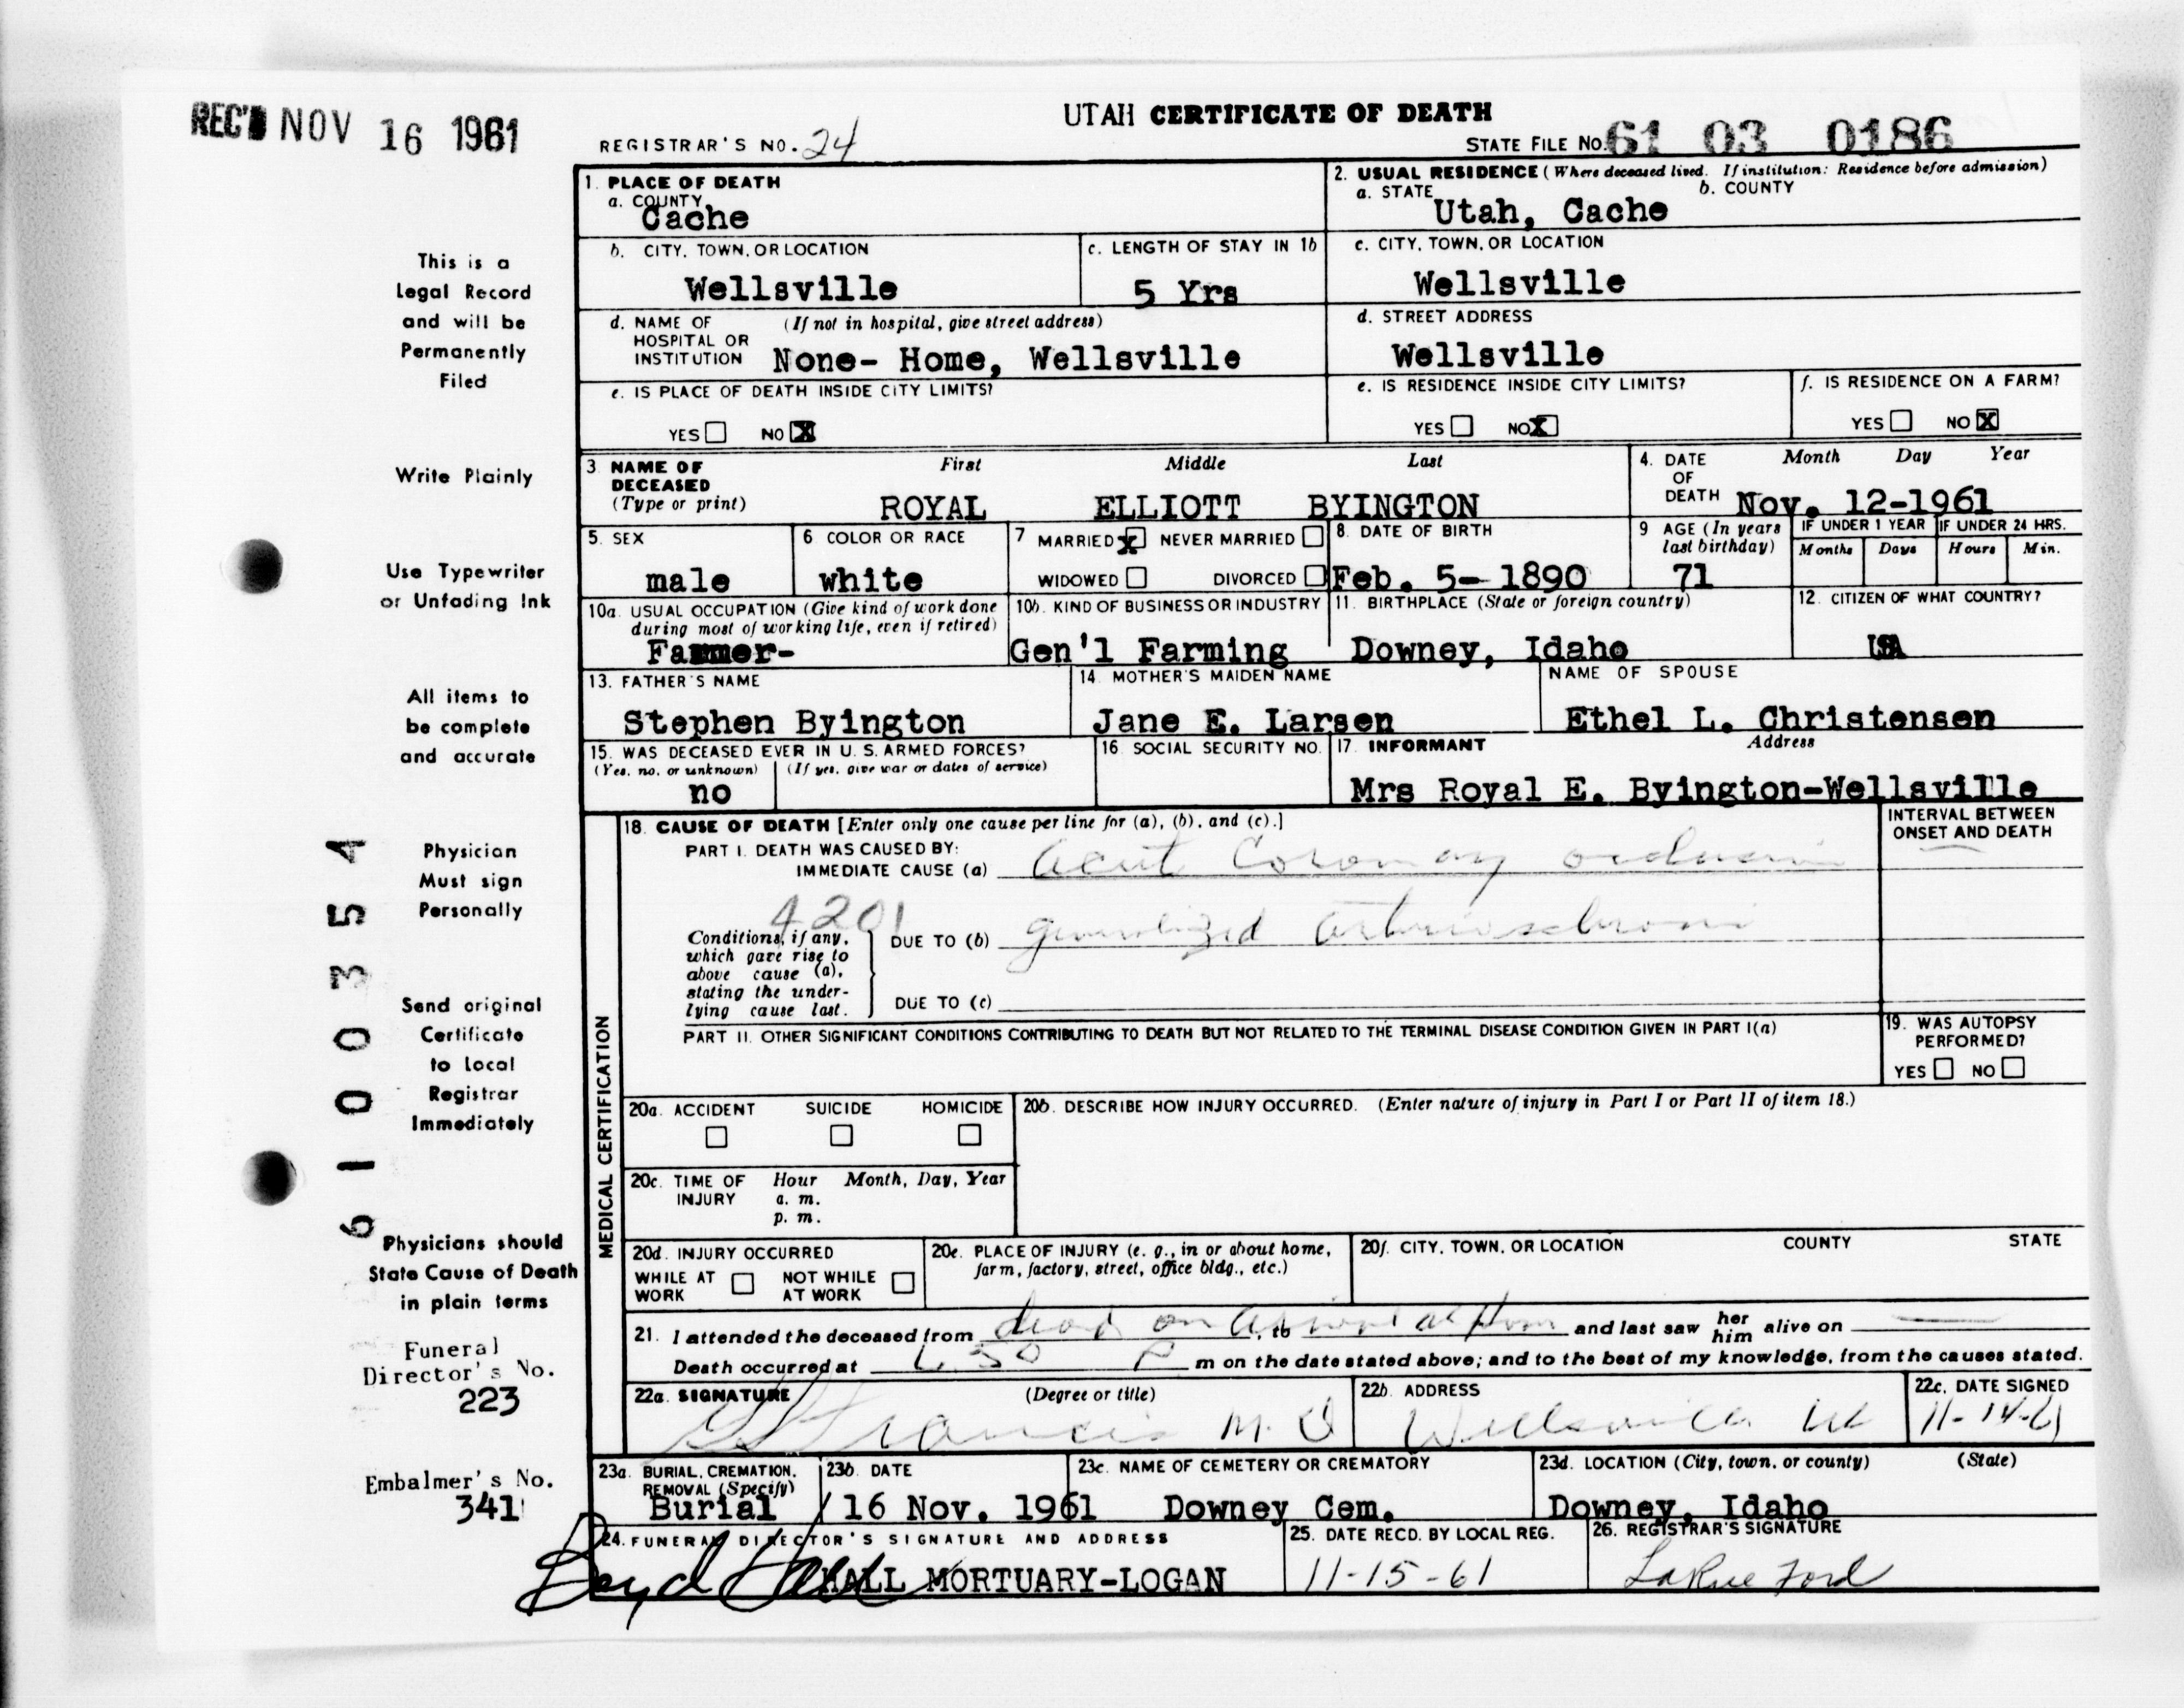 REC'D NOV 16 1961
UTAH CERTIFICATE OF DEATH
REGISTRAR'S NO. 24
STATE FILE NO. 61 03 0186
1. PLACE OF DEATH
a. COUNTY
Cache
2. USUAL RESIDENCE (Where deceased lived. If institution: Residence before admission)
a. STATE b. COUNTY
Utah, Cache
b. CITY, TOWN, OR LOCATION
Wellsville
c. LENGTH OF STAY IN 1b
5 Yrs
c. CITY, TOWN, OR LOCATION
Wellsville
d. NAME OF HOSPITAL OR INSTITUTION (If not in hospital, give street address)
None- Home, Wellsville
d. STREET ADDRESS
Wellsville
e. IS PLACE OF DEATH INSIDE CITY LIMITS?
YES NO X
e. IS RESIDENCE INSIDE CITY LIMITS?
YES NO X
f. IS RESIDENCE ON A FARM?
YES NO X
3 NAME OF DECEASED (Type or print)
First Middle Last
ROYAL ELLIOTT BYINGTON
4. DATE OF DEATH Month Day Year
Nov. 12-1961
5. SEX
male
6 COLOR OR RACE
white
7 MARRIED X NEVER MARRIED
WIDOWED DIVORCED
8. DATE OF BIRTH
Feb. 5- 1890
9 AGE (In years last birthday)
71
IF UNDER 1 YEAR IF UNDER 24 HRS.
Months Days Hours Min.
10a. USUAL OCCUPATION (Give kind of work done during most of working life, even if retired)
Farmer-
10b. KIND OF BUSINESS OR INDUSTRY
Gen'l Farming
11. BIRTHPLACE (State or foreign country)
Downey, Idaho
12. CITIZEN OF WHAT COUNTRY?
USA
13. FATHER'S NAME
Stephen Byington
14. MOTHER'S MAIDEN NAME
Jane E. Larsen
NAME OF SPOUSE
Ethel L. Christensen
15. WAS DECEASED EVER IN U. S. ARMED FORCES?
(Yes, no, or unknown) (If yes, give war or dates of service)
no
16. SOCIAL SECURITY NO.
17. INFORMANT Address
Mrs Royal E. Byington-Wellsville
MEDICAL CERTIFICATION
18. CAUSE OF DEATH [Enter only one cause per line for (a), (b), and (c).]
INTERVAL BETWEEN ONSET AND DEATH
PART I. DEATH WAS CAUSED BY:
IMMEDIATE CAUSE (a) acut Coronary occlusion
4201
Conditions, if any, which gave rise to above cause (a), stating the underlying cause last.
DUE TO (b) generalized arteriosclerosis
DUE TO (c)
PART II. OTHER SIGNIFICANT CONDITIONS CONTRIBUTING TO DEATH BUT NOT RELATED TO THE TERMINAL DISEASE CONDITION GIVEN IN PART I(a)
19. WAS AUTOPSY PERFORMED?
YES NO
20a. ACCIDENT SUICIDE HOMICIDE
20b. DESCRIBE HOW INJURY OCCURRED. (Enter nature of injury in Part I or Part II of item 18.)
20c. TIME OF INJURY Hour Month, Day, Year
a. m.
p. m.
20d. INJURY OCCURRED
WHILE AT WORK NOT WHILE AT WORK
20e. PLACE OF INJURY (e. g., in or about home, farm, factory, street, office bldg., etc.)
20f. CITY, TOWN, OR LOCATION COUNTY STATE
21. I attended the deceased from dead on arrival at Hom, to and last saw her him alive on
Death occurred at 6 50 P m on the date stated above; and to the best of my knowledge, from the causes stated.
22a. SIGNATURE (Degree or title)
Francis M. D
22b. ADDRESS
Wellsville Ut
22c. DATE SIGNED
11-14-61
23a. BURIAL, CREMATION, REMOVAL (Specify)
Burial
23b. DATE
16 Nov. 1961
23c. NAME OF CEMETERY OR CREMATORY
Downey Cem.
23d. LOCATION (City, town, or county) (State)
Downey, Idaho
24. FUNERAL DIRECTOR'S SIGNATURE AND ADDRESS
Boyd Hall HALL MORTUARY-LOGAN
25. DATE RECD. BY LOCAL REG.
11-15-61
26. REGISTRAR'S SIGNATURE
LaRue Ford
This is a
Legal Record
and will be
Permanently
Filed
Write Plainly
Use Typewriter
or Unfading Ink
All items to
be complete
and accurate
Physician
Must sign
Personally
Send original
Certificate
to Local
Registrar
Immediately
Physicians should
State Cause of Death
in plain terms
Funeral
Director's No.
223
Embalmer's No.
341
6100354